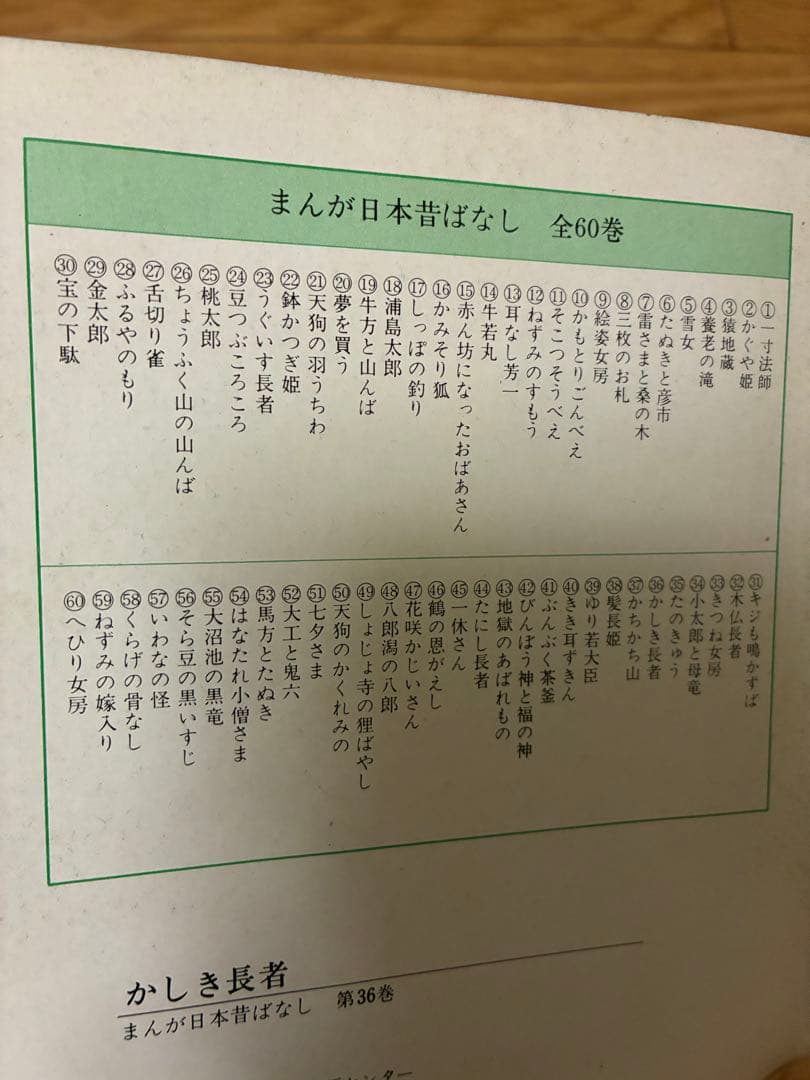 まんが日本昔ばなし 全60巻
①一寸法師
②かぐや姫
③猿地蔵
④養老の滝
⑤雪女
⑥たぬきと彦市
⑦雷さまと桑の木
⑧三枚のお札
⑨絵姿女房
⑩かもとりごんべえ
⑪そこつそうべえ
⑫ねずみのすもう
⑬耳なし芳一
⑭牛若丸
⑮赤ん坊になったおばあさん
⑯かみそり狐
⑰しっぽの釣り
⑱浦島太郎
⑲牛方と山んば
⑳夢を買う
㉑天狗の羽うちわ
㉒鉢かつぎ姫
㉓うぐいす長者
㉔豆つぶころころ
㉕桃太郎
㉖ちょうふく山の山んば
㉗舌切り雀
㉘ふるやのもり
㉙金太郎
㉚宝の下駄
㉛キジも鳴かずば
㉜木仏長者
㉝きつね女房
㉞小太郎と母竜
㉟たのきゅう
㊱かしき長者
㊲かちかち山
㊳髪長姫
㊴ゆり若大臣
㊵きき耳ずきん
㊶ぶんぶく茶釜
㊷びんぼう神と福の神
㊸地獄のあばれもの
㊹たにし長者
㊺一休さん
㊻鶴の恩がえし
㊼花咲かじいさん
㊽八郎潟の八郎
㊾しょじょ寺の狸ばやし
㊿天狗のかくれみの
51七夕さま
52大工と鬼六
53馬方とたぬき
54はなたれ小僧さま
55大沼池の黒竜
56そら豆の黒いすじ
57いわなの怪
58くらげの骨なし
59ねずみの嫁入り
60へひり女房
かしき長者
まんが日本昔ばなし 第36巻
センター